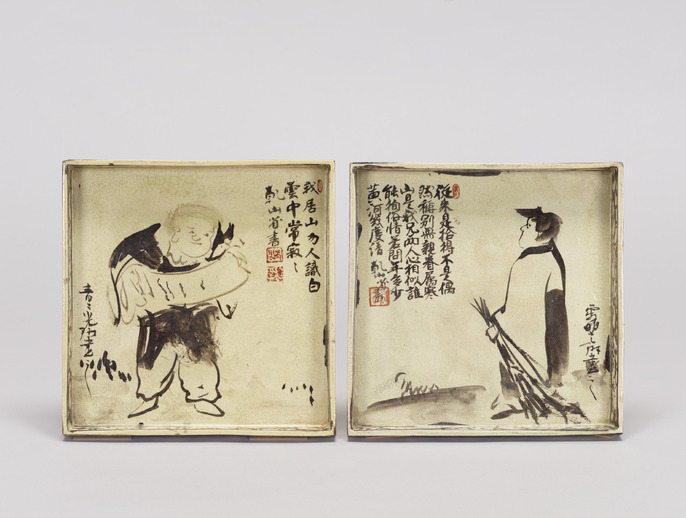 我居山勿人識白
雲中常寂〻
乾山省書
青〻光琳畫之
從來是拾得不是偶
然稱別無親眷属寒
山是我兄兩人心相似誰
能徇俗情若問年多少
黄河幾度清 乾山省書
寂明光琳畫之